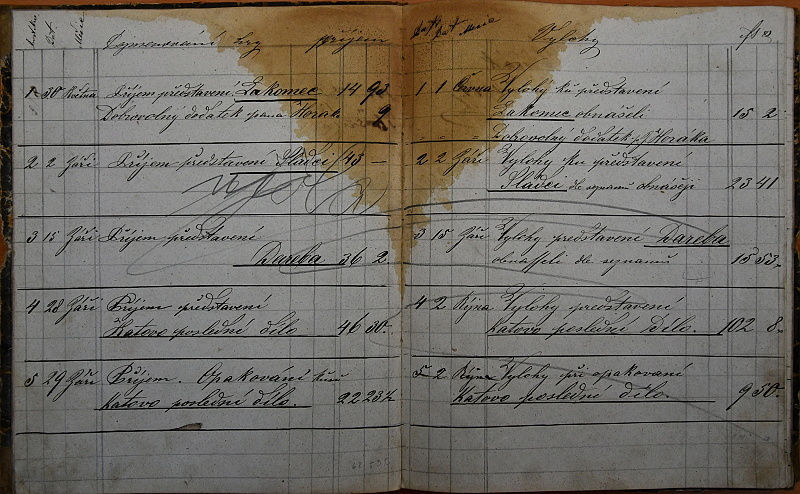 Dat. Měsíc
Pojmenování hry příjem
1 30 Května Příjem představení Lakomec 14 93
Dobrovolný dodatek pana Horák 2
2 2 Září Příjem představení Sládci 43 —
3 15 Září Příjem představení
Dareba 36 2
4 28 Září Příjem představení
Katovo poslední dílo 46 30
5 29 Září Příjem. Opakování kusu
Katovo poslední dílo. 22 23½
Dat Měsíc
Výlohy
1 1 Června Výlohy ku představení
Lakomec obnášeli 15 2
Dobrovolný dodatek p. Horáka
2 2 Září Výlohy ku představení
Sládci dle seznamu obnášeji 23 41
3 15 Září Výlohy představení Dareba
obnášeli dle seznamu 15 53
4 2 Října Výlohy představení
Katovo poslední Dílo. 102 8
5 2 Října Výlohy při opakovaní
Katovo poslední dílo. 9 50